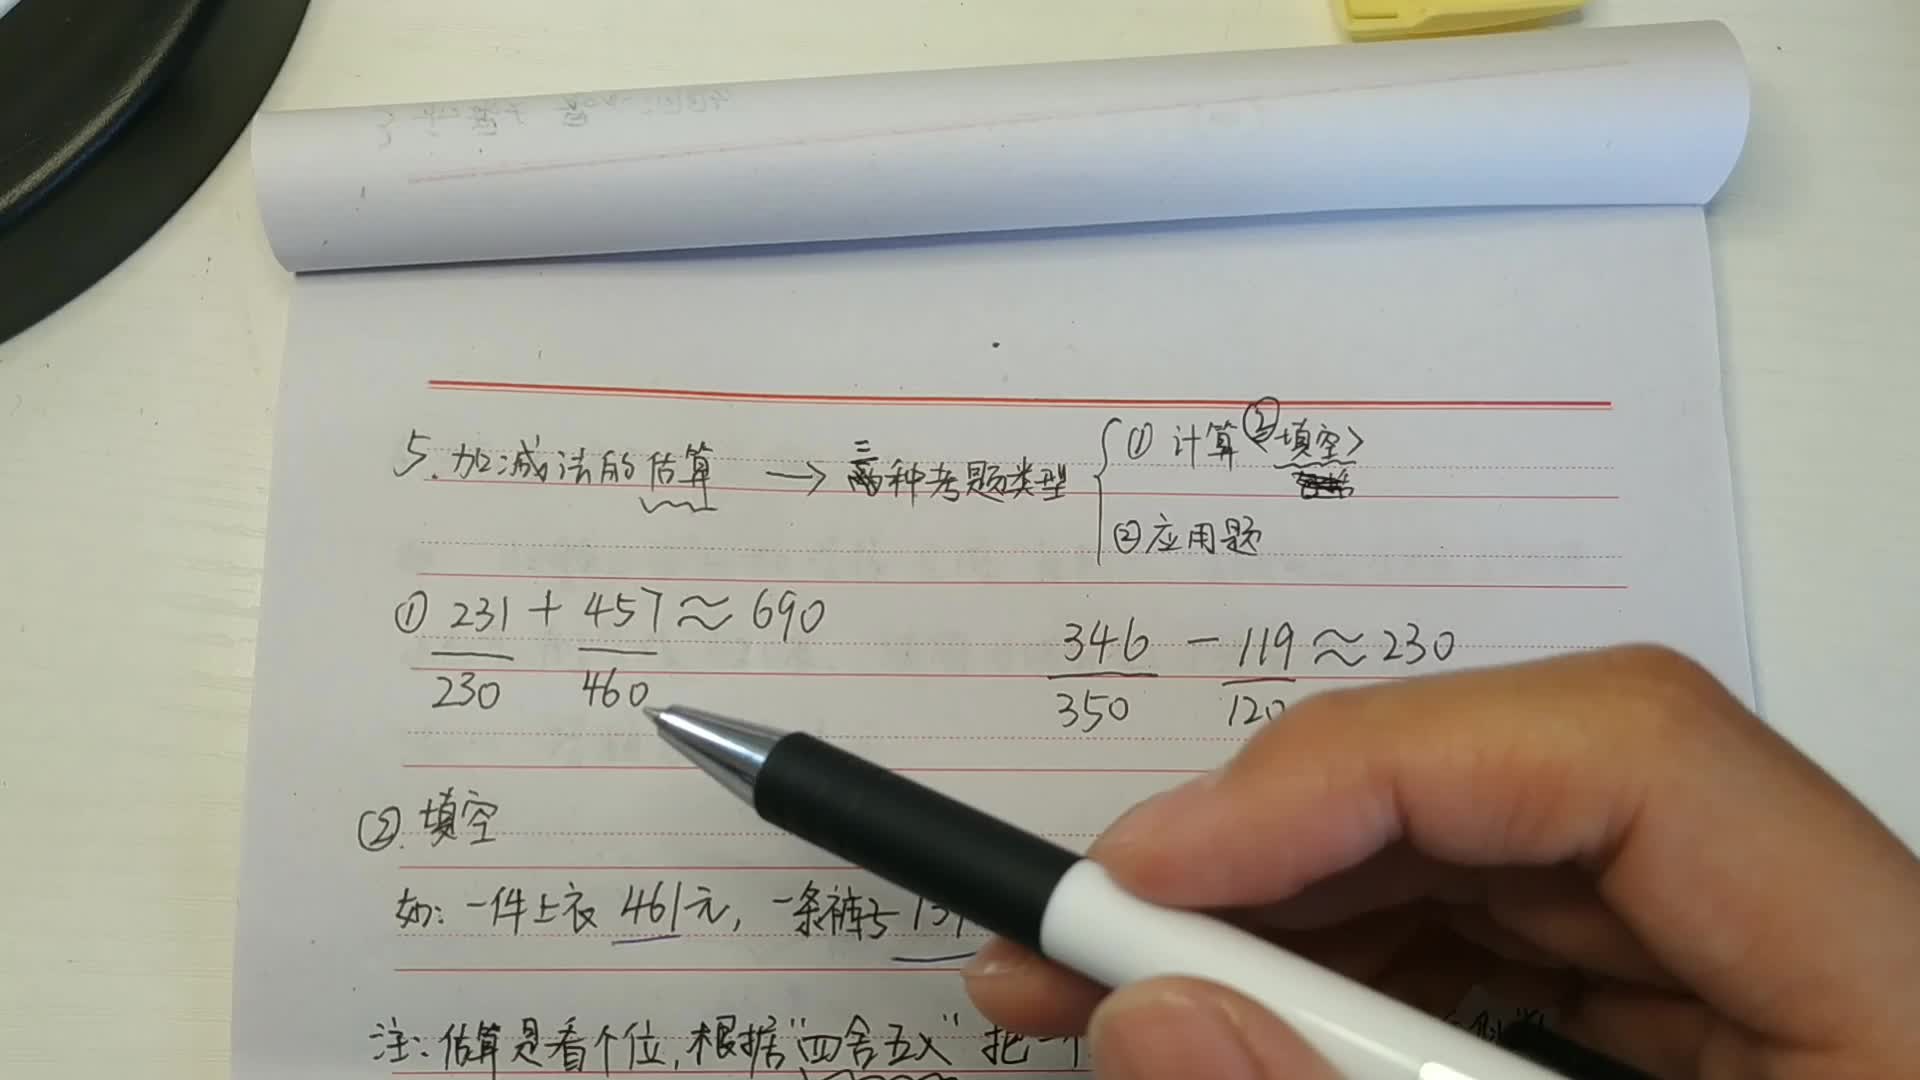 5.加减法的估算 → 三种考题类型 ① 计算 ②<填空>
②应用题
① 231 + 457 ≈ 690
230 460
346 - 119 ≈ 230
350 120
②.填空
如:一件上衣461元,一条裤子
注:估算是看个位,根据"四舍五入"把一个